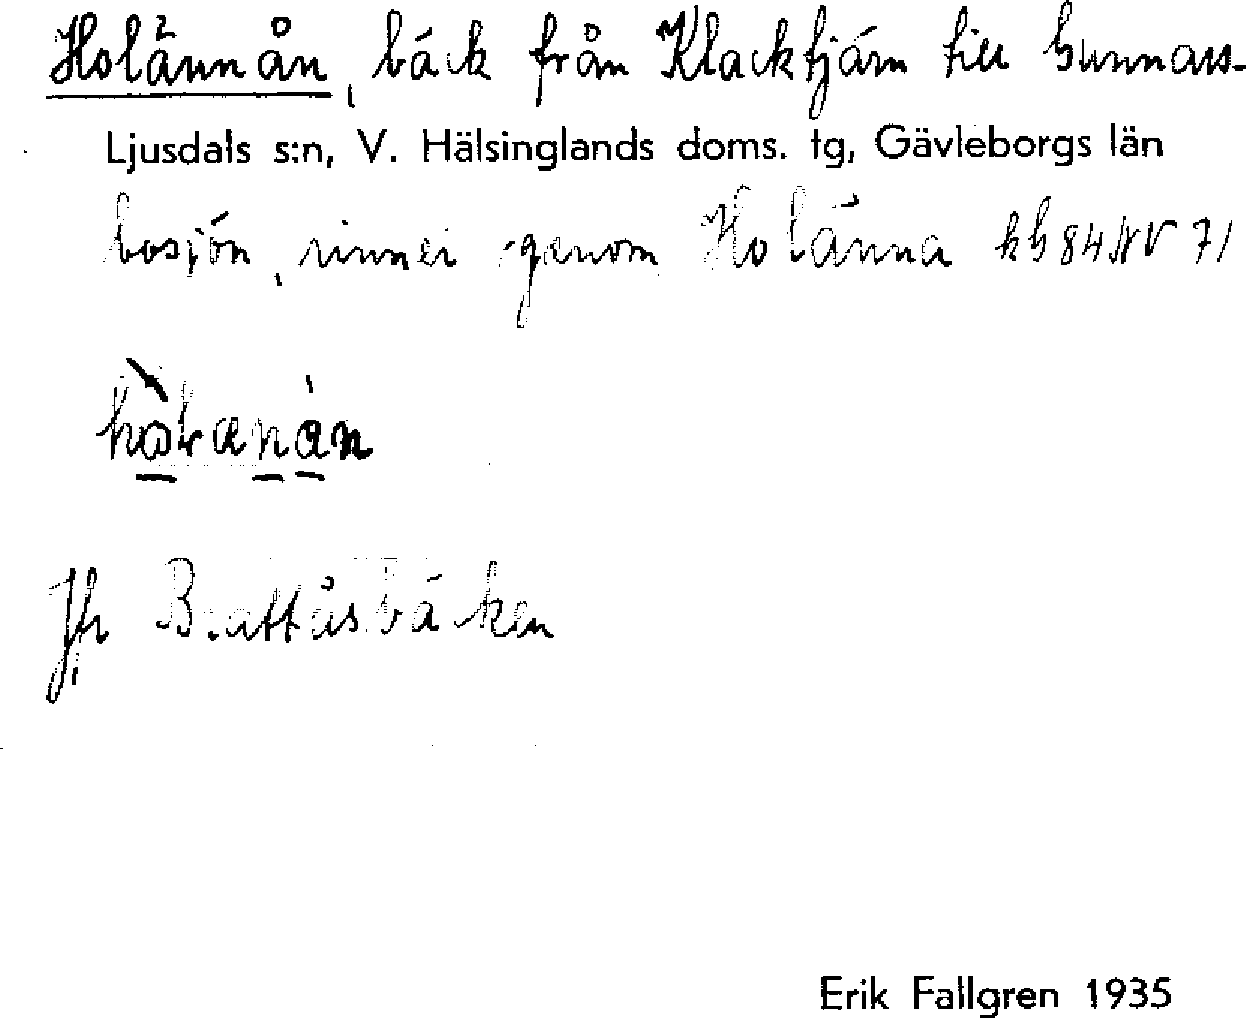 Holännån, bäck från Klacktjärn till Gunnars-
Ljusdals s:n, V. Hälsinglands doms. tg, Gävleborgs län
bosjön, rinner genom Holänna kb 84 NV 71
Jfr Brattåsbäcken
Erik Fallgren 1935